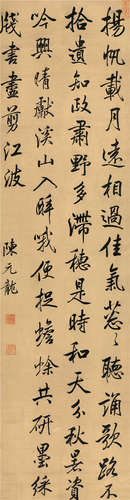 揚帆載月遠相過佳氣葱〻聽誦歌路不
拾遺知政肅野多滯穗是時和天分秋暑資
吟興晴獻溪山入醉哦便捉蟾蜍共研墨綵
牋書盡剪江波
陳元龍